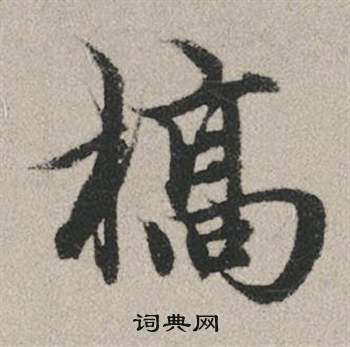 槁
词典网